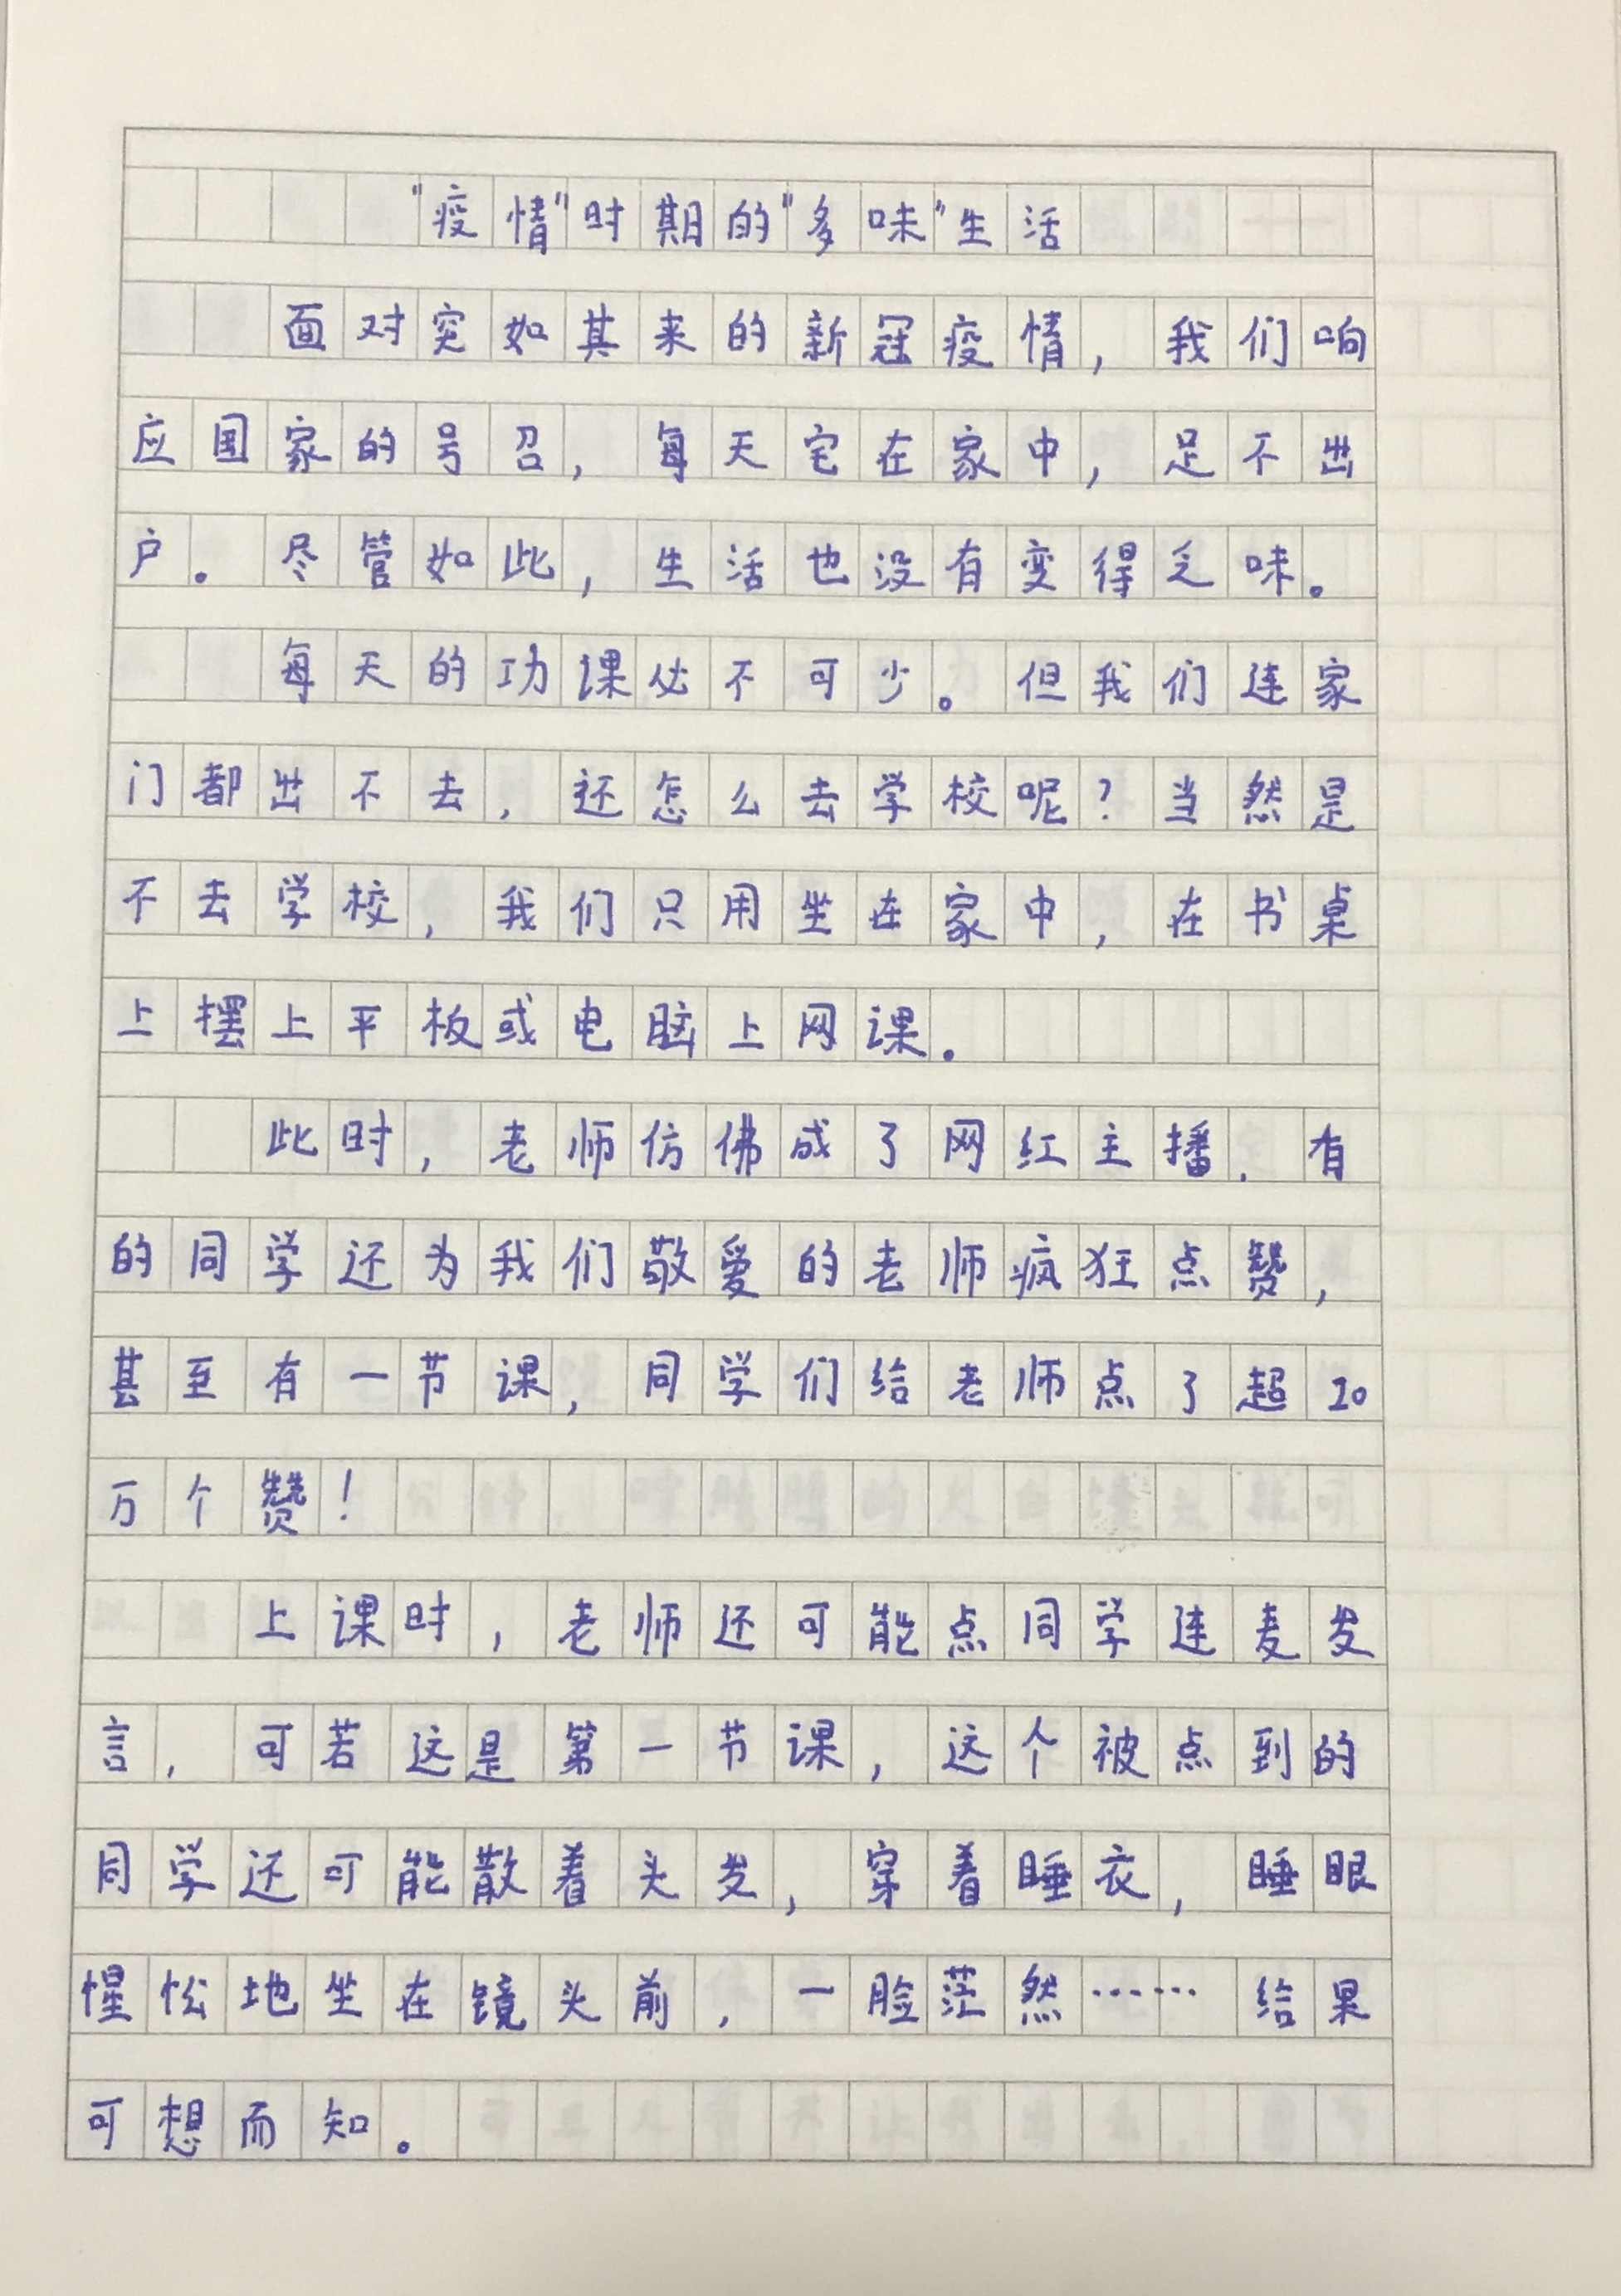 "疫情"时期的"多味"生活
面对突如其来的新冠疫情，我们响
应国家的号召，每天宅在家中，足不出
户。尽管如此，生活也没有变得乏味。
每天的功课必不可少。但我们连家
门都出不去，还怎么去学校呢？当然是
不去学校，我们只用坐在家中，在书桌
上摆上平板或电脑上网课。
此时，老师仿佛成了网红主播，有
的同学还为我们敬爱的老师疯狂点赞，
甚至有一节课，同学们给老师点了超20
万个赞！
上课时，老师还可能点同学连麦发
言，可若这是第一节课，这个被点到的
同学还可能散着头发，穿着睡衣，睡眼
惺忪地坐在镜头前，一脸茫然……给果
可想而知。